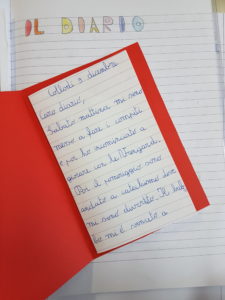 IL DIARIO
Collodi 3 dicembre
Caro diario,
Sabato mattina mi sono
messo a fare i compiti
e poi ho ricominciato a
giocare con le
Per il pomeriggio sono
andato a catechismo dove
mi sono divertito. Il
mi è venuto a